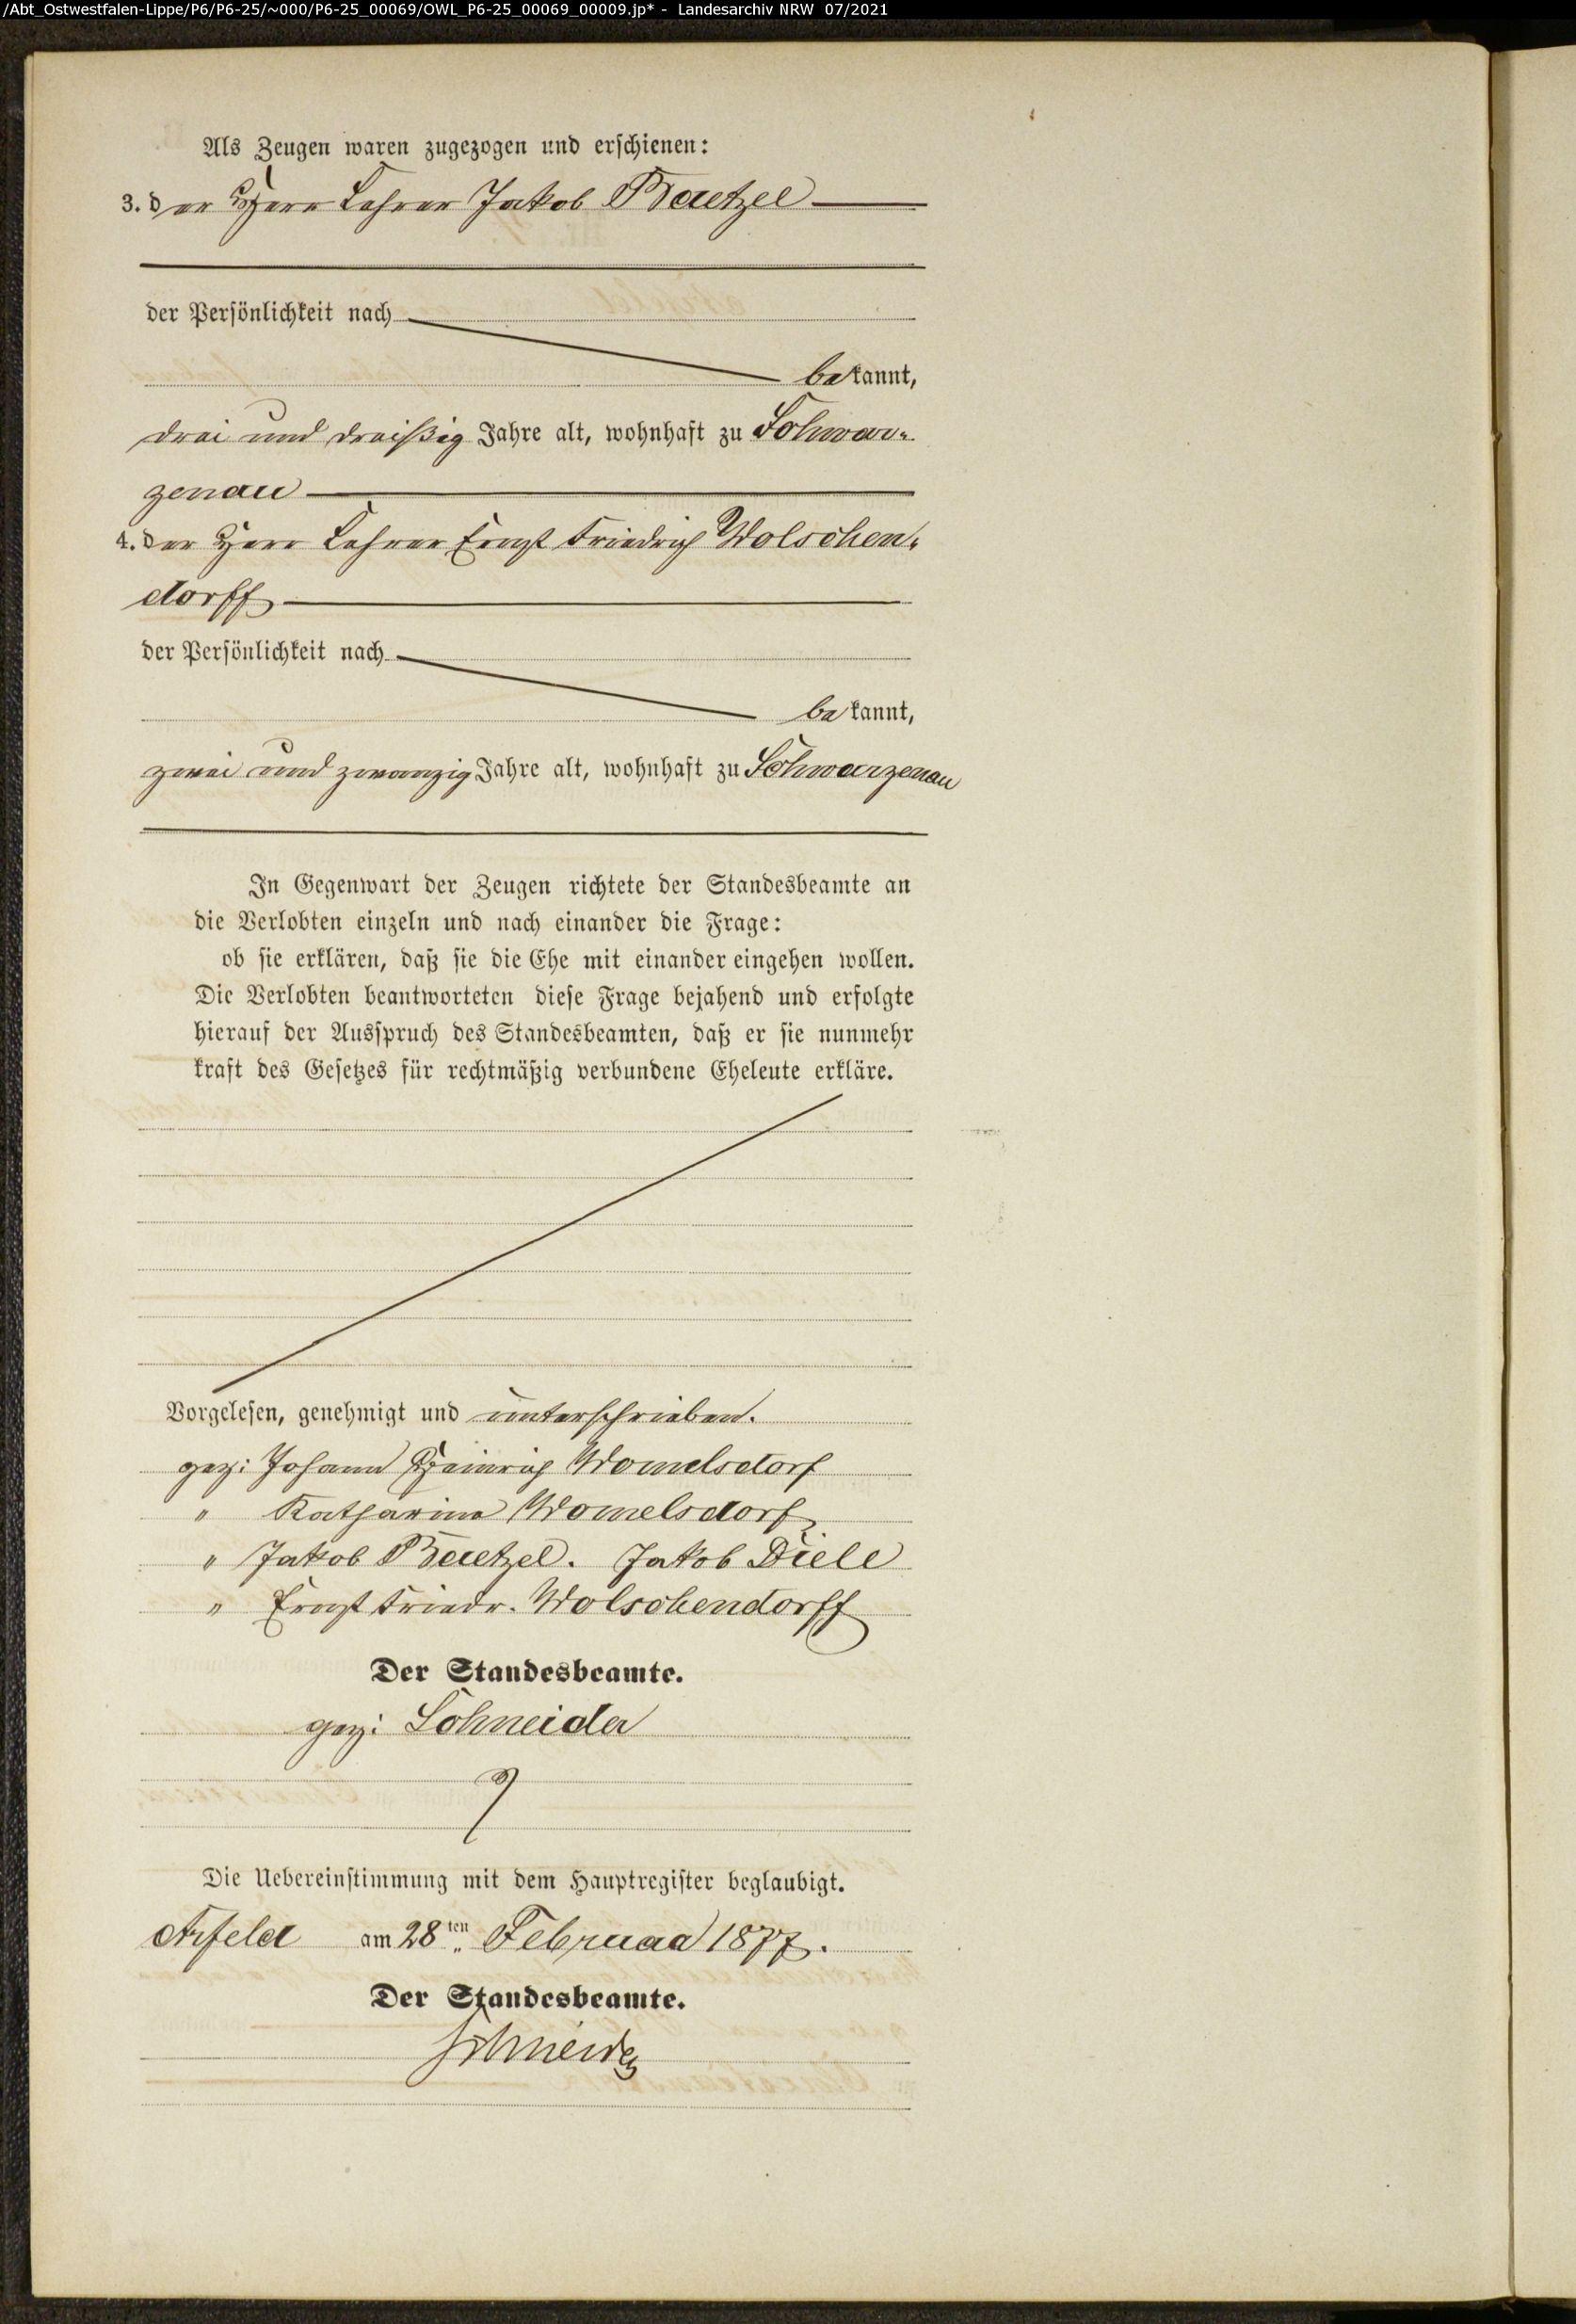 /Abt_Ostwestfalen-Lippe/P6/P6-25/~000/P6-25_00069/OWL_P6-25_00069_00009.jp* - Landesarchiv NRW 07/2021
Als Zeugen waren zugezogen und erschienen:
3. der Herr Lehrer Jakob Baetzel
der Persönlichkeit nach
bekannt,
drei und dreißig Jahre alt, wohnhaft zu Schwar-
zenau
4. der Herr Lehrer Ernst Friedrich Wolschen-
dorff
der Persönlichkeit nach
bekannt,
zwei und zwanzig Jahre alt, wohnhaft zu Schwarzenau
In Gegenwart der Zeugen richtete der Standesbeamte an
die Verlobten einzeln und nach einander die Frage:
ob sie erklären, daß sie die Ehe mit einander eingehen wollen.
Die Verlobten beantworteten diese Frage bejahend und erfolgte
hierauf der Ausspruch des Standesbeamten, daß er sie nunmehr
kraft des Gesetzes für rechtmäßig verbundene Eheleute erkläre.
Vorgelesen, genehmigt und unterschrieben.
gez: Johann Heinrich Womelsdorf
" Katharina Womelsdorf
" Jakob Baetzel. Jakob Diele
" Ernst Friedr. Wolschendorff
Der Standesbeamte.
gez: Schneider
Die Uebereinstimmung mit dem Hauptregister beglaubigt.
Arfeld am 28ten Februar 1877.
Der Standesbeamte.
Schneider